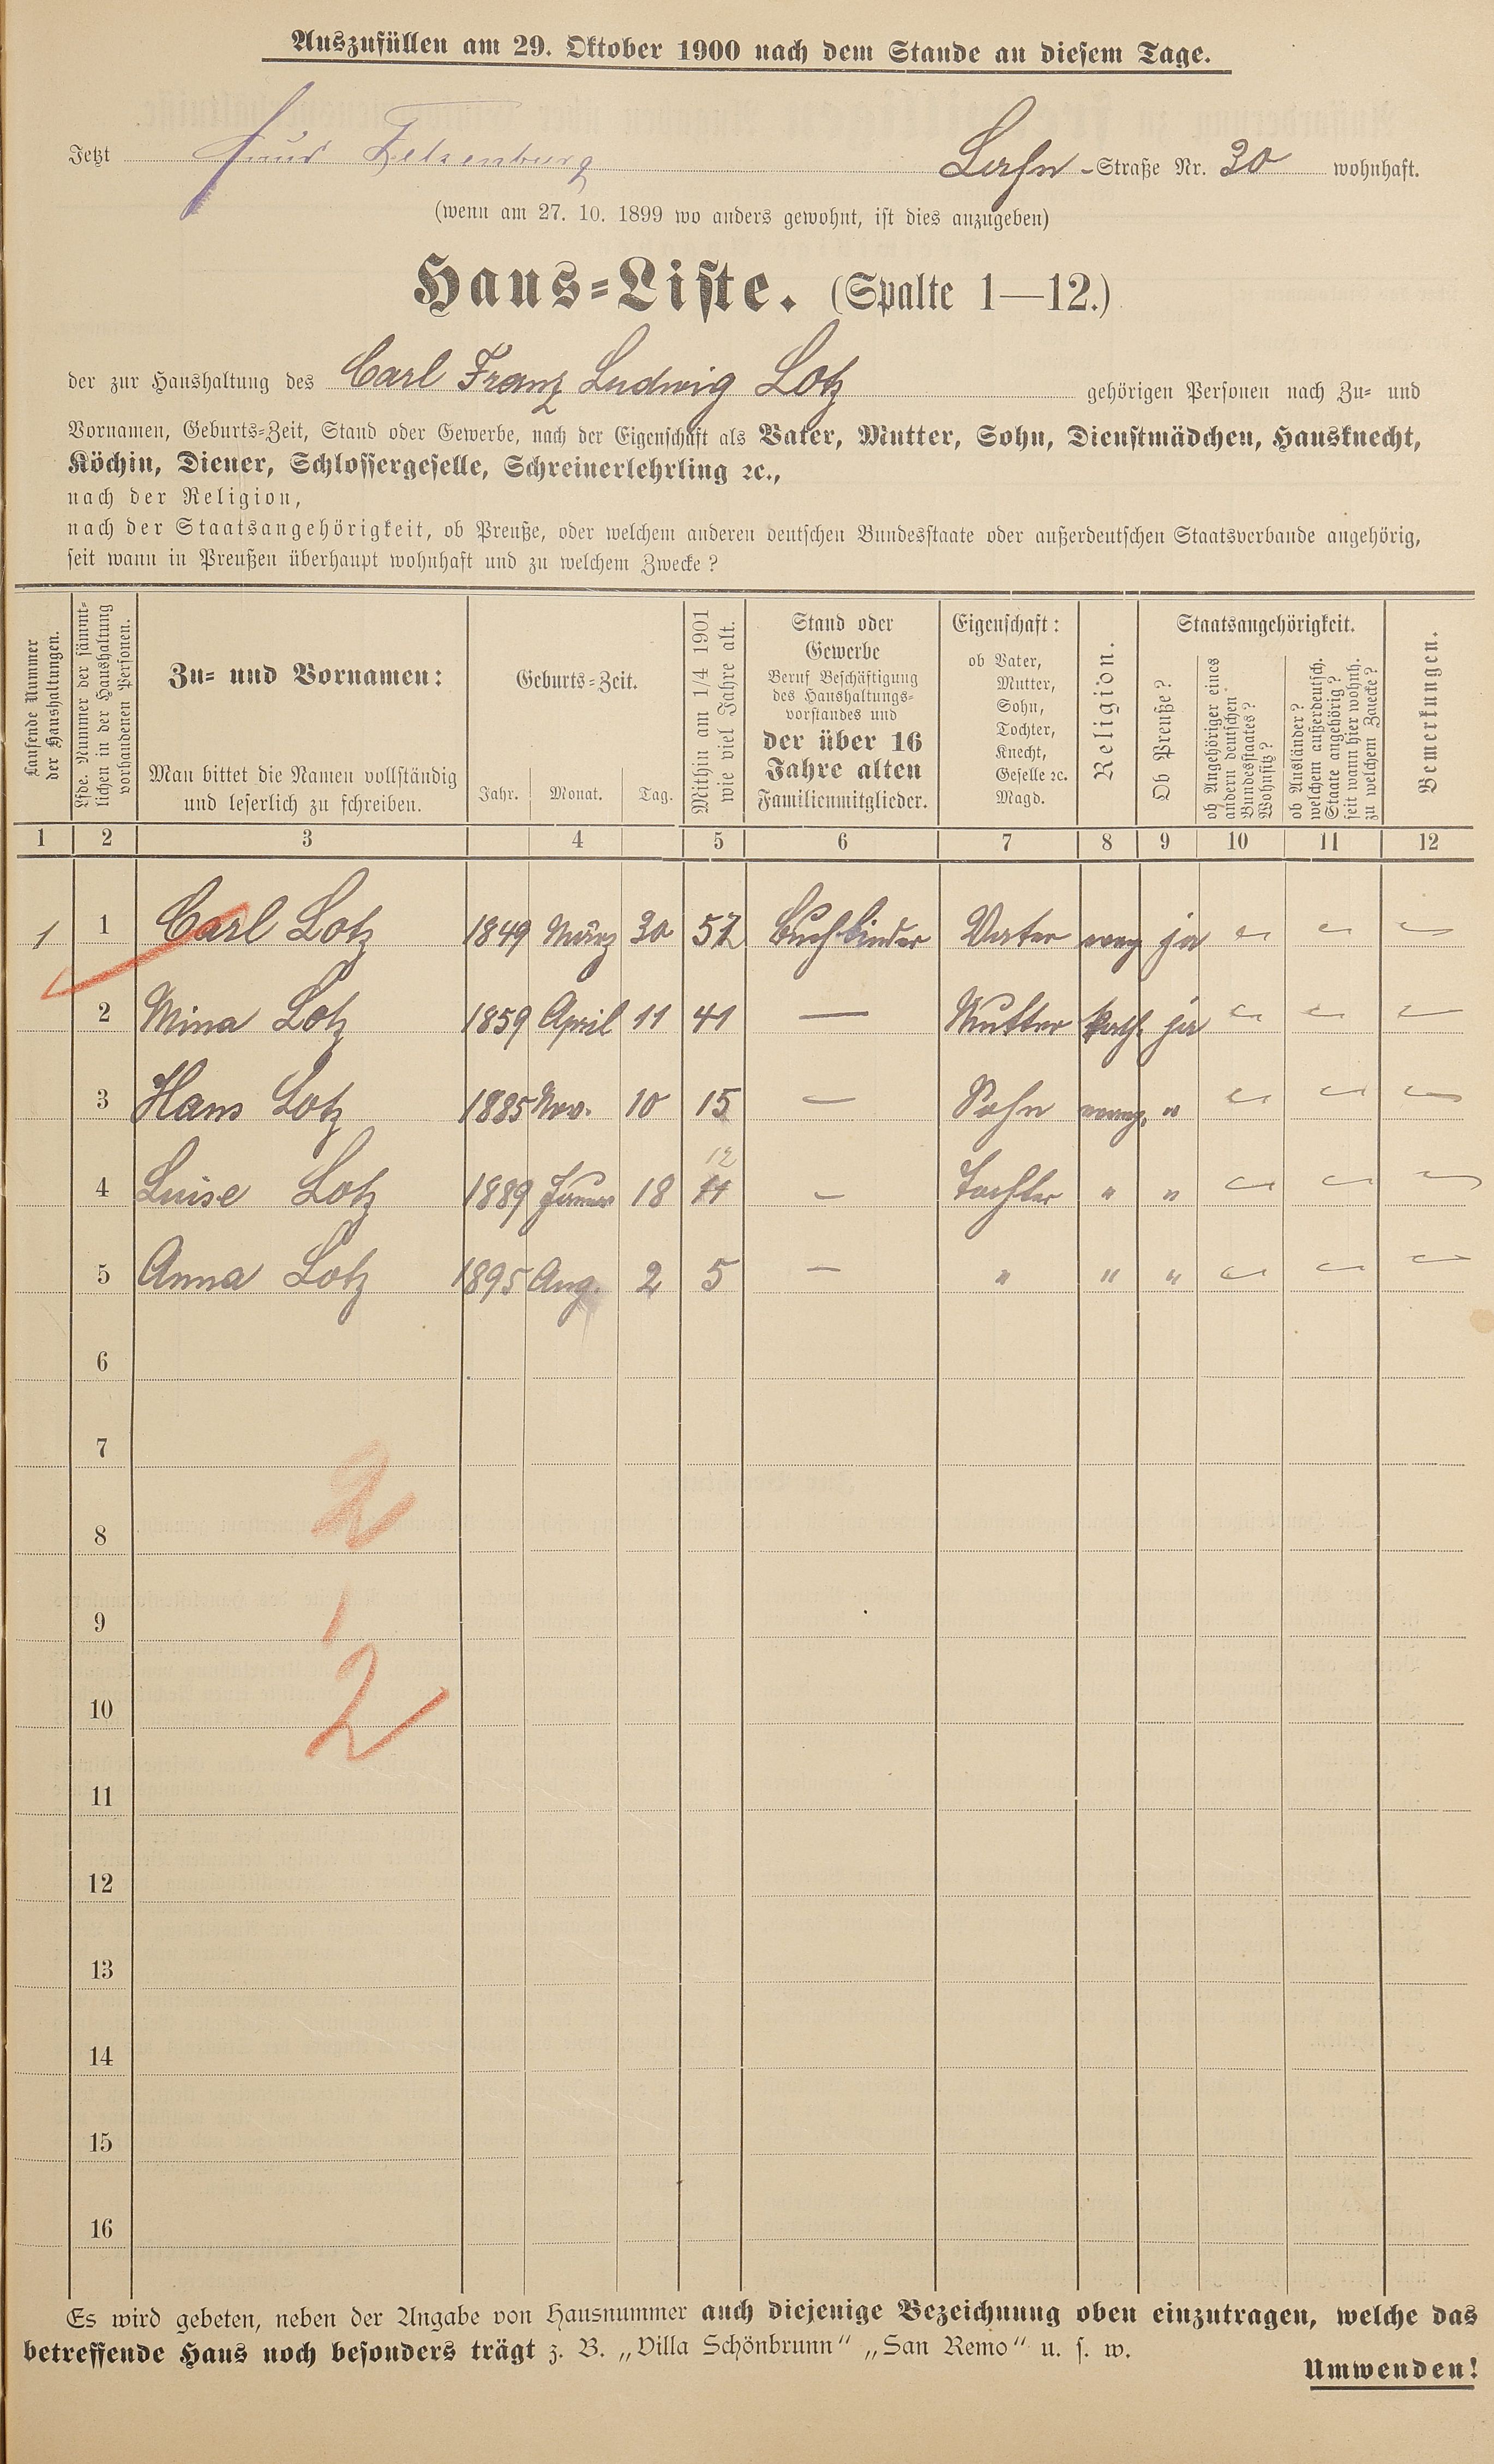 Auszufüllen am 29. Oktober 1900 nach dem Stande an diesem Tage.
Jetzt Haus Felsenburg Lahn-Straße Nr. 30 wohnhaft.
(wenn am 27. 10. 1899 wo anders gewohnt, ist dies anzugeben)
Haus-Liste. (Spalte 1—12.)
der zur Haushaltung des Carl Franz Ludwig Lotz gehörigen Personen nach Zu- und
Vornamen, Geburts-Zeit, Stand oder Gewerbe, nach der Eigenschaft als Vater, Mutter, Sohn, Dienstmädchen, Hausknecht,
Köchin, Diener, Schlossergeselle, Schreinerlehrling ꝛc.,
nach der Religion,
nach der Staatsangehörigkeit, ob Preuße, oder welchem anderen deutschen Bundesstaate oder außerdeutschen Staatsverbande angehörig,
seit wann in Preußen überhaupt wohnhaft und zu welchem Zwecke?
Laufende Nummer
der Haushaltungen.
Lfde. Nummer der sämmt-
lichen in der Haushaltung
vorhandenen Personen.
Zu- und Vornamen:
Man bittet die Namen vollständig
und leserlich zu schreiben.
Geburts-Zeit.
Jahr. Monat. Tag.
Mithin am 1/4 1901
wie viel Jahre alt.
Stand oder
Gewerbe
Beruf Beschäftigung
des Haushaltungs-
vorstandes und
der über 16
Jahre alten
Familienmitglieder.
Eigenschaft:
ob Vater,
Mutter,
Sohn,
Tochter,
Knecht,
Geselle ꝛc.
Magd.
Religion.
Staatsangehörigkeit.
Ob Preuße?
ob Angehöriger eines
andern deutschen
Bundesstaates?
Wohnsitz?
ob Ausländer?
welchem außerdeutsch.
Staate angehörig?
seit wann hier wohnh.
zu welchem Zwecke?
Bemerkungen.
1 2 3 4 5 6 7 8 9 10 11 12
1 1 Carl Lotz 1849 März 30 52 Buchbinder Vater evang ja — — —
2 Mina Lotz 1859 April 11 41 — Mutter kath. ja — — —
3 Hans Lotz 1885 Nov. 10 15 — Sohn evang. " — — —
12
4 Luise Lotz 1889 Januar 18 11 — Tochter " " — — —
5 Anna Lotz 1895 Aug. 2 5 — " " " — — —
6
7
2
8
1
9
2
10
11
12
13
14
15
16
Es wird gebeten, neben der Angabe von Hausnummer auch diejenige Bezeichnung oben einzutragen, welche das
betreffende Haus noch besonders trägt z. B. „Villa Schönbrunn“ „San Remo“ u. s. w.
Umwenden!